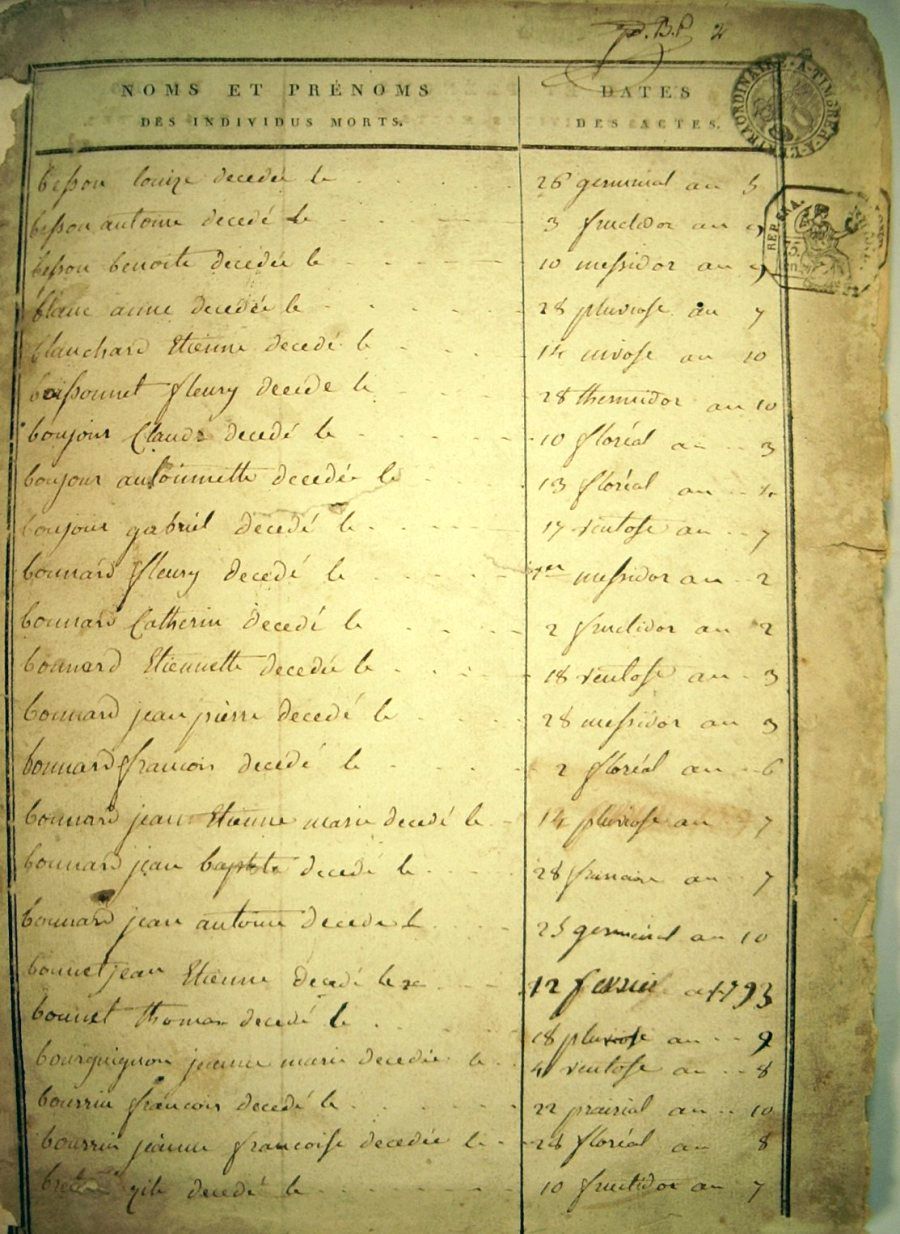 p. B. P 2
NOMS ET PRÉNOMS
DES INDIVIDUS MORTS.
DATES
DES ACTES.
EXTRAORDINAIRE
REP. FRA.
besson louize decedée le 26 germinal an 5
besson antoine decedé le 3 fructidor an
besson benoite decédée le 10 messidor an 9
blanc anne decedée le 28 pluviose an 7
blanchard Etienne decedé le 14 nivose an 10
boissonnet fleury decede le 28 thermidor an 10
boujour Claude decedé le 10 floréal an 3
boujour antoinnette decedée le 13 floréal an
boujour gabriel decedé le 17 ventose an 7
bonnard fleury decedé le 1er messidor an 2
bonnard Catherin decedé le 2 fructidor an 2
bonnard Etiennette decedée le 18 ventose an 3
bonnard jean pierre decedé le 28 messidor an 3
bonnard francois decedé le 2 floréal an 6
bonnard jean Etienne marie decedé le 14 pluviose an 7
bonnard jean baptiste decedé le 28 frimaire an 7
bonnard jean antoine decede le 25 germinal an 10
bonnet jean Etienne decedé le 12 fevrier 1793
bonnet thomas decedé le 18 pluviose an 9
bourguignon jeanne marie decedée le 4 ventose an 8
bourrin francois decedé le 22 prairial an 10
bourrin jeanne francoise decedée le 28 floréal an 8
decedé le 10 fructidor an 7